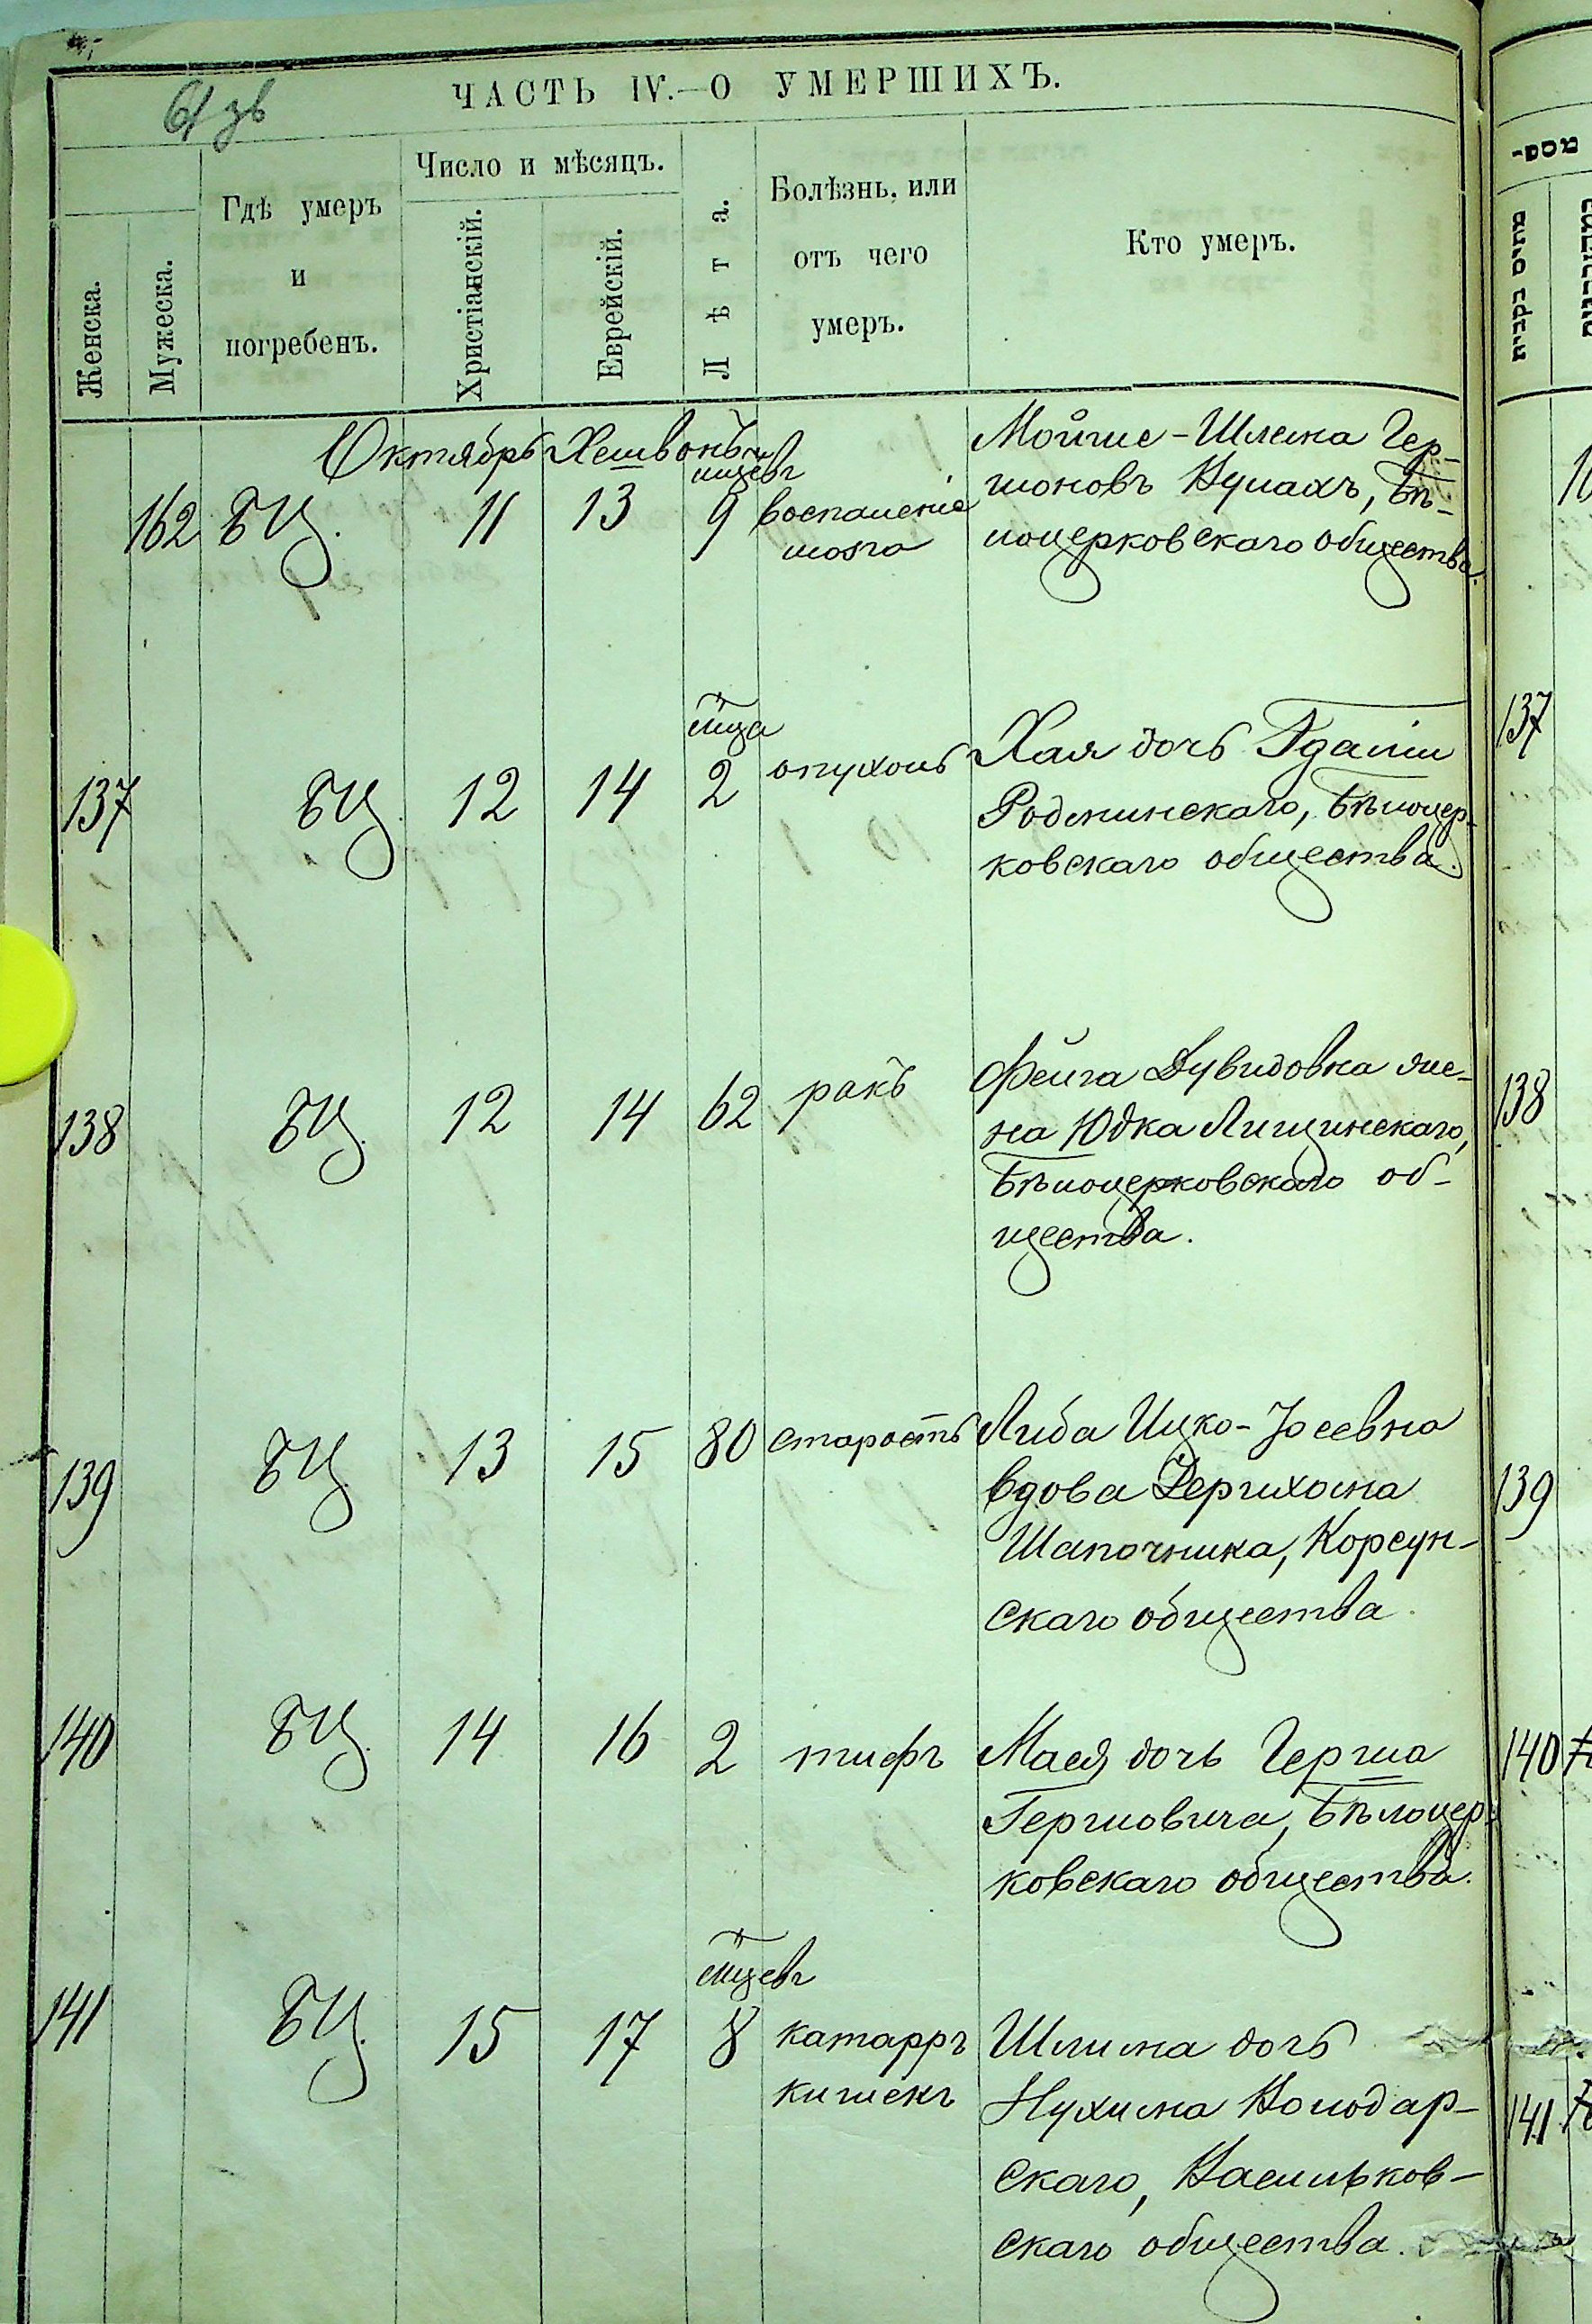 61 зв
ЧАСТЬ IV.—О УМЕРШИХЪ.
Женска.
Мужеска.
Гдѣ умеръ
и
погребенъ.
Число и мѣсяцъ.
Христіанскій.
Еврейскій.
Лѣта.
Болѣзнь, или
отъ чего
умеръ.
Кто умеръ.
Октябрь Хешвонъ
162 БЦ. 11 13 мцевъ 9 воспаленіе
мозга
Мойше-Шлема Гер-
шоновъ Кумахъ, Бѣ-
лоцерковскаго общества.
137 БЦ. 12 14 мца 2 опухоль
Хая дочь Гдаліи
Родминскаго, Бѣлоцер-
ковскаго общества.
138 БЦ. 12 14 62 ракъ
Фейга Дувидовна же-
на Юдка Лищинскаго,
Бѣлоцерковскаго об-
щества.
139 БЦ 13 15 80 старость
Либа Ицко-Іосевна
вдова
Шапочника, Корсун-
скаго общества.
140 БЦ. 14 16 2 тифъ
Мася дочь Герша
Гершовича, Бѣлоцер-
ковскаго общества.
141 БЦ. 15 17 мцевъ 8 катарръ
кишекъ
Шлима дочь
Нухима Володар-
скаго, Васильков-
скаго общества.
מתים בקבית
137
138
139
140
141